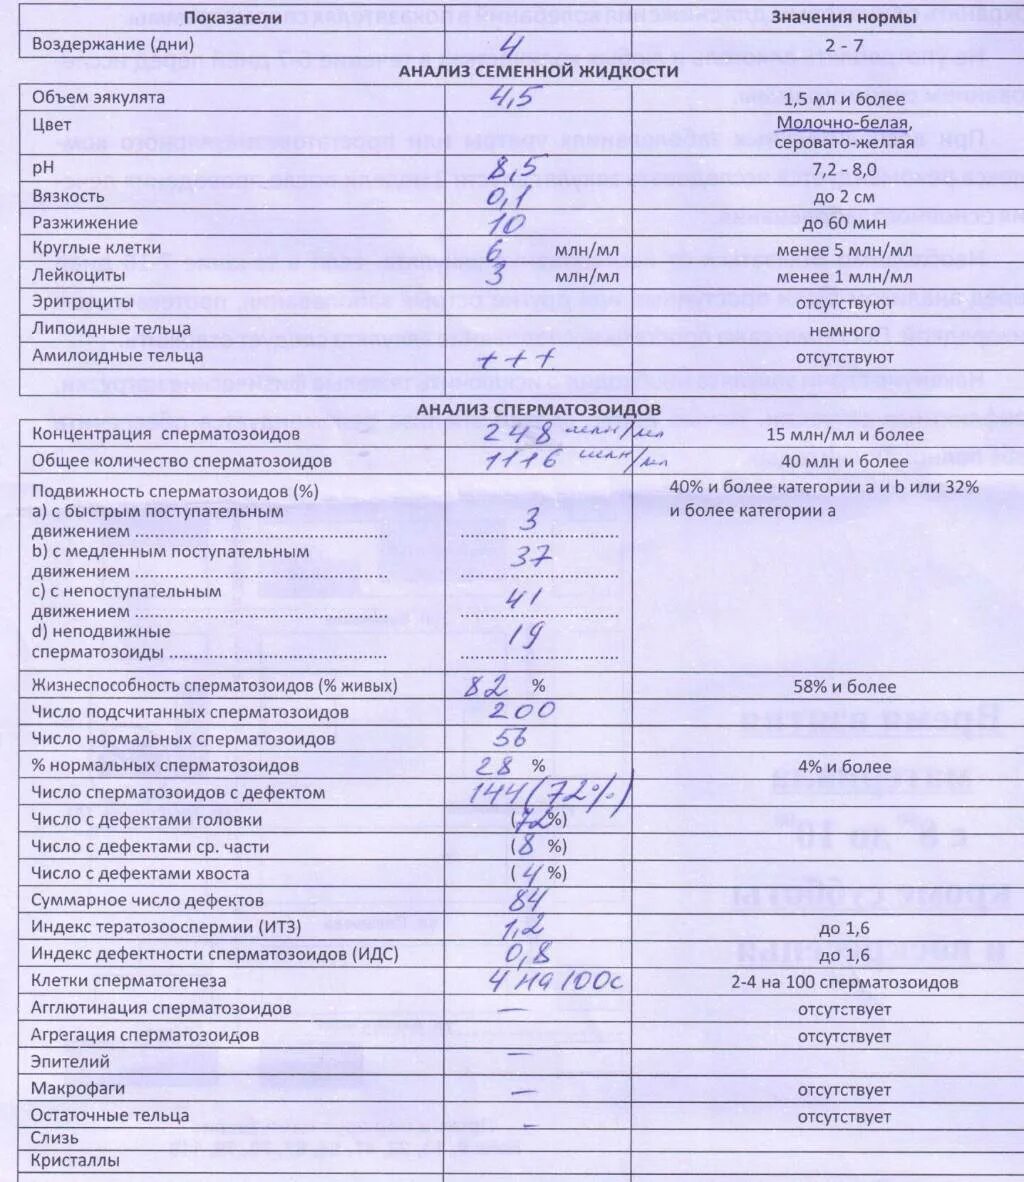 Показатели Значения нормы
Воздержание (дни) 4 2 - 7
АНАЛИЗ СЕМЕННОЙ ЖИДКОСТИ
Объем эякулята 4,5 1,5 мл и более
Цвет Молочно-белая,
серовато-желтая
pH 8,5 7,2 - 8,0
Вязкость 0,1 до 2 см
Разжижение 10 до 60 мин
Круглые клетки 6 млн/мл менее 5 млн/мл
Лейкоциты 3 млн/мл менее 1 млн/мл
Эритроциты отсутствуют
Липоидные тельца немного
Амилоидные тельца +++ отсутствуют
АНАЛИЗ СПЕРМАТОЗОИДОВ
Концентрация сперматозоидов 248 млн/мл 15 млн/мл и более
Общее количество сперматозоидов 1116 млн/мл 40 млн и более
Подвижность сперматозоидов (%) 40% и более категории a и b или 32%
a) с быстрым поступательным и более категории a
движением 3
b) с медленным поступательным
движением 37
c) с непоступательным
движением 41
d) неподвижные 19
сперматозоиды
Жизнеспособность сперматозоидов (% живых) 82 % 58% и более
Число подсчитанных сперматозоидов 200
Число нормальных сперматозоидов 56
% нормальных сперматозоидов 28 % 4% и более
Число сперматозоидов с дефектом 144 (72%)
Число с дефектами головки (72 %)
Число с дефектами ср. части (8 %)
Число с дефектами хвоста (4 %)
Суммарное число дефектов 84
Индекс тератозооспермии (ИТЗ) 1,2 до 1,6
Индекс дефектности сперматозоидов (ИДС) 0,8 до 1,6
Клетки сперматогенеза 4 на 100с 2-4 на 100 сперматозоидов
Агглютинация сперматозоидов — отсутствует
Агрегация сперматозоидов отсутствует
Эпителий —
Макрофаги — отсутствует
Остаточные тельца – отсутствует
Слизь
Кристаллы